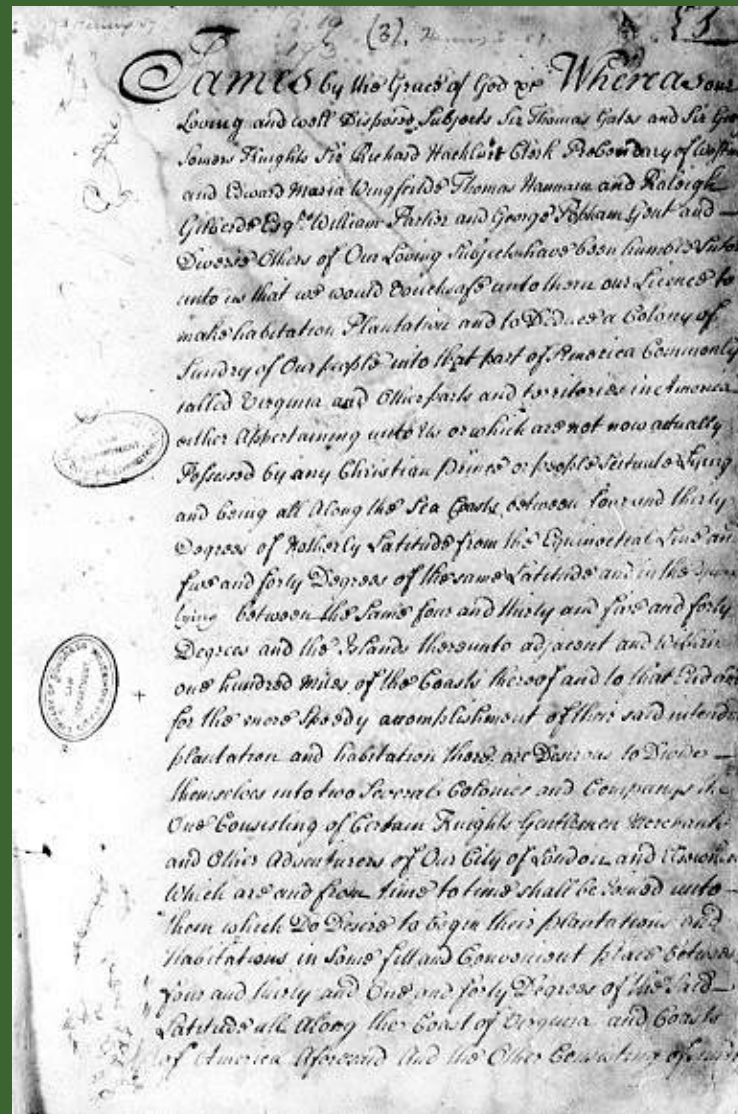 (3).
James by the Grace of God &c Whereas our
Loving and well Disposed Subjects Sir Thomas Gates and Sir Geo
Somers Knights Sir Richard Hackluit Clerk Prebendary of Westm
and Edward Maria Wingfeilde Thomas Hannam and Raleigh
Gilberde Esqrs William Parker and George Popham Gent and
Diverse Others of Our Loving Subjects have been humble Suitor
unto us that we would vouchsafe unto them our Licence to
make habitation Plantation and to Deduce a Colony of
Sundry of Our people into that part of America Commonly
called Virginia and Other parts and territories in America
either Appertaining unto Us or which are not now actually
Possessed by any Christian Prince or people Scituate Lying
and being all Along the Sea Coasts between four and thirty
Degrees of Northerly Latitude from the Equinoctial Line and
five and forty Degrees of the same Latitude and in the
lying between the Same four and thirty and five and forty
Degrees and the Islands thereunto adjacent and within
one hundred Miles of the Coasts thereof and to that End and
for the more Speedy accomplishment of their said intended
plantation and habitation there are Desirous to Divide
themselves into two Several Colonies and Companys the
One Consisting of Certain Knights Gentlemen Merchants
and Other Adventurers of Our City of London and Elsewhere
Which are and from time to time shall be Joined unto
them which Do Desire to begin their plantations and
Habitations in Some fitt and Convenient place between
four and thirty and One and forty Degrees of the Said
Latitude all Along the Coast of Virginia and Coasts
of America Aforesaid And the Other Consisting of
LAW
DEPARTMENT